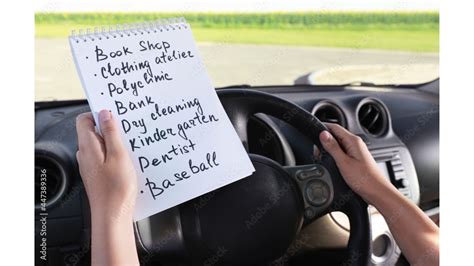 · Book Shop
· Clothing atelier
· Polyclinic
· Bank
· Dry cleaning
· Kindergarten
· Dentist
· Baseball
Adobe Stock
447389336